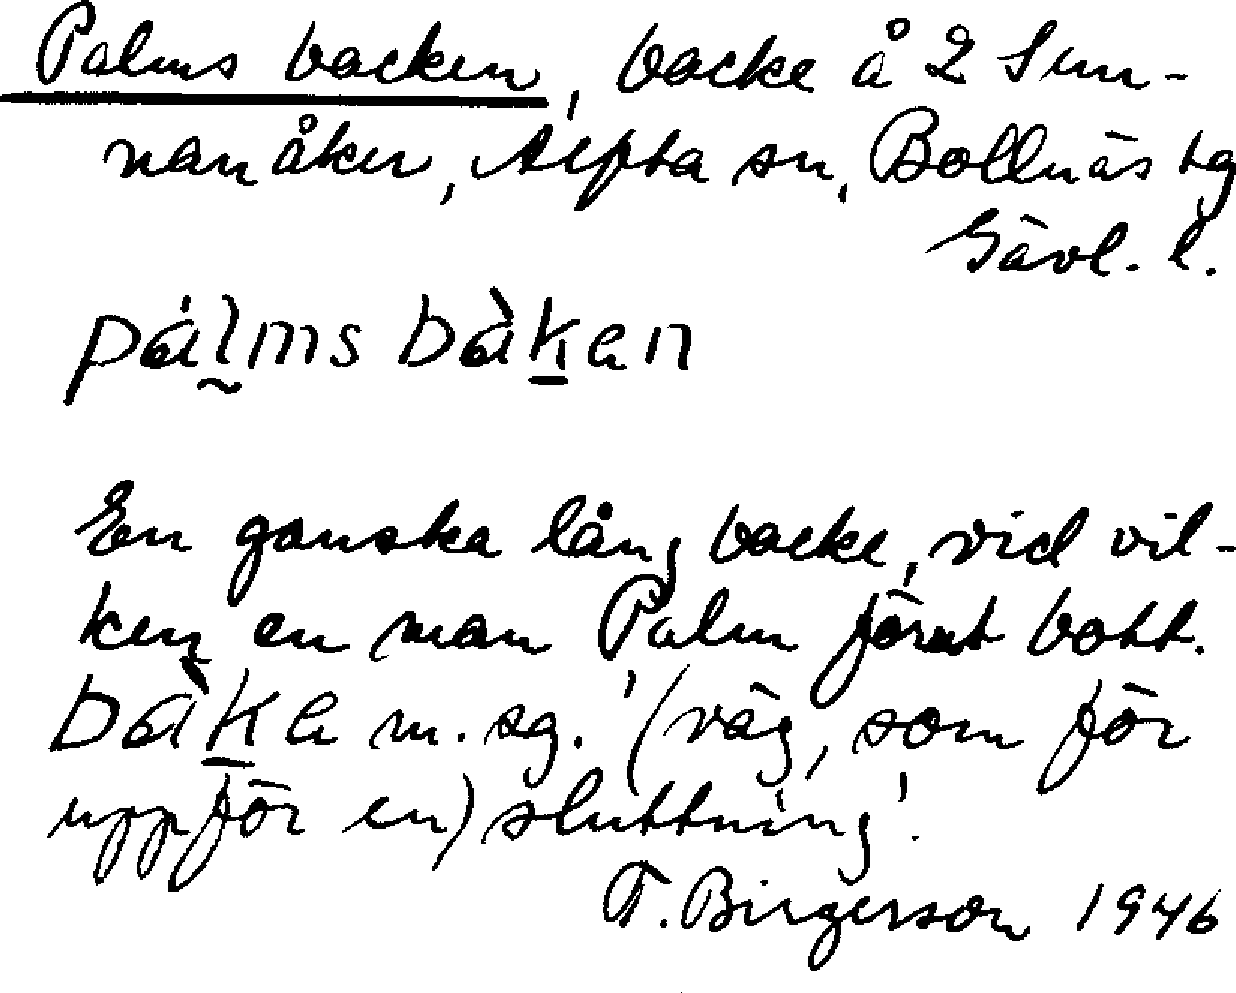 Palms backen, backe å 2 Sun-
nanåker, Alfta sn, Bollnäs tg
Gävl. l.
pálms bàken
En ganska lång backe, vid vil-
ken en man Palm förut bott.
bàke m. sg. '(väg, som för
uppför en) sluttning'.
T. Birgerson 1946